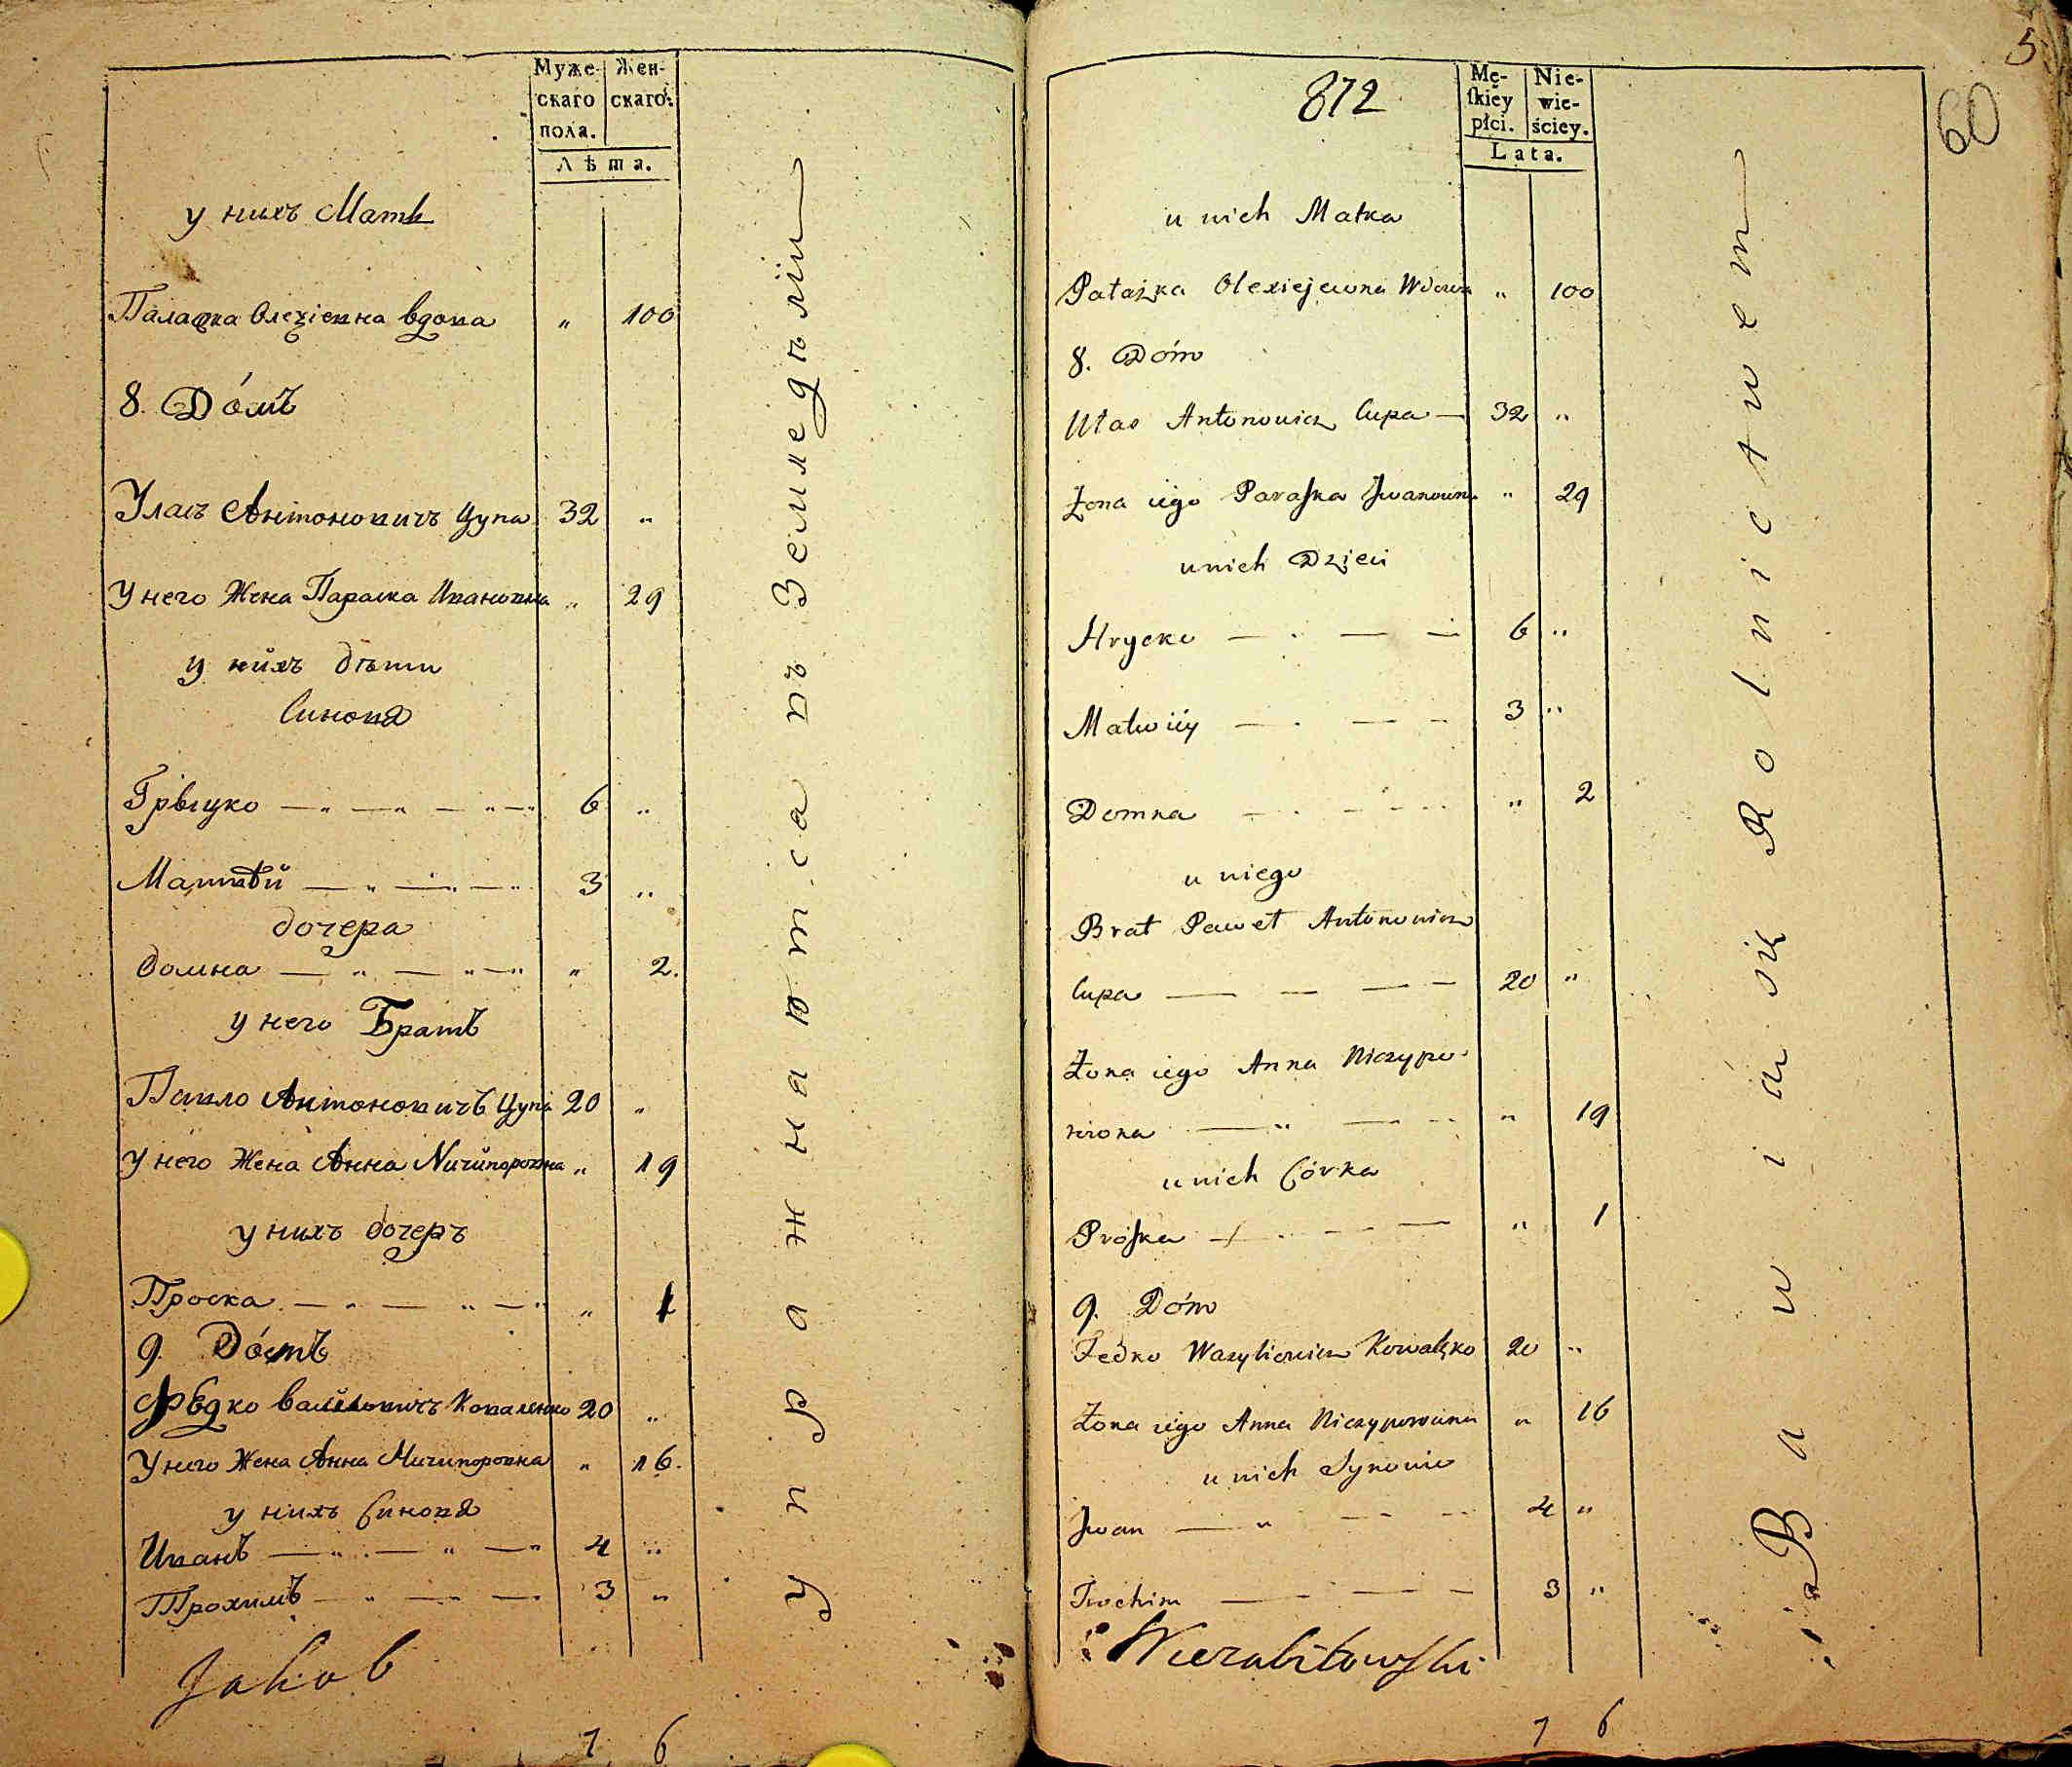 Муже-
скаго
пола.
Жен-
скаго.
Лѣта.
у нихъ Мать
Палашка Олексіевна вдова " 100
8. Домъ
Уласъ Антоновичъ Цупа 32 "
У него Жена Параска Ивановна " 29
у нихъ дѣти
Синовя
Грыцко — " — " — " — " 6 "
Матвѣй — " — " — " 3 "
дочера
домна — " — " — " " 2.
у него Братъ
Павло Антоновичъ Цупа 20 "
У него Жена Анна Ничипоровна " 19
у нихъ дочеръ
Проска — " — " — " " 1
9. Домъ
Федко Васильовичъ Коваленко 20 "
У него Жена Анна Ничипоровна " 16.
у нихъ Синовя
Иванъ — " — " — " 4 "
Трохимъ — " — " — 3 "
Упражнаютса въ Земледѣліи
Jakob
7 6
5
60
872
Mę-
ſkiey
płci.
Nie-
wie-
ściey.
Lata.
u nich Matka
Pałażka Olexiejewna Wdowa " 100
8. Dóm
Ułas Antonowicz Cupa — 32 "
Żona iego Paraſka Jwanowna " 29
u nich Dzieci
Hrycko — . — — 6 "
Matwiiy — . — - 3 "
Domka — . — . . " 2
u niego
Brat Paweł Antonowicz
Cupa — — — - 20 "
Żona iego Anna Niczypo-
rowna — " — . . " 19
u nich Córka
Proſka — . - — " 1
9. Dóm
Fedko Wasyliowicz Kowalżko 20 "
Żona iego Anna Niczyporowna " 16
u nich Synowie
Jwan — " — - - 4 "
Trochim — — - 3 "
Bawią się Rolnictwem
Wierzbiłowſki
7 6